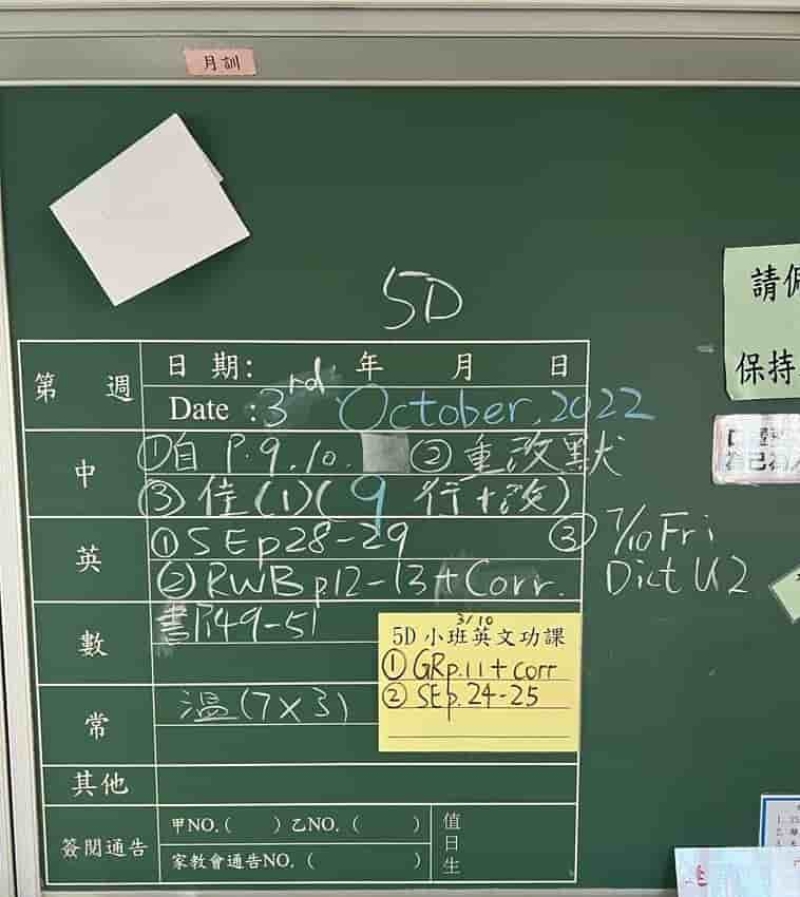 月訓
5D
請
保持
日 期: 年 月 日
第 週
Date : 3rd October, 2022
中
①自 P.9,10. ②重改默
③佳(1)(9行+改)
英
①SEp28-29
②RWB p.12-13+Corr.
③ 7/10 Fri
Dict U2
數
書P.49-51
3/10
5D 小班英文功課
① GRp.11+corr
② SEp.24-25
常
溫(7×3)
其他
簽閱通告
甲NO.( ) 乙NO. ( )
家教會通告NO. ( )
值日生